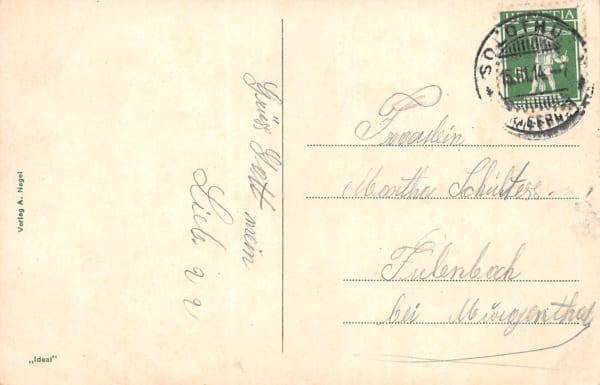 HELVETIA
SOLOTHURN
15.III.14.-7
Grüss Gott mein
Lieb.
Fräulein
Martha Schülters
Fulenbach
bei Murgenthal
Verlag A. Nagel
„Ideal"